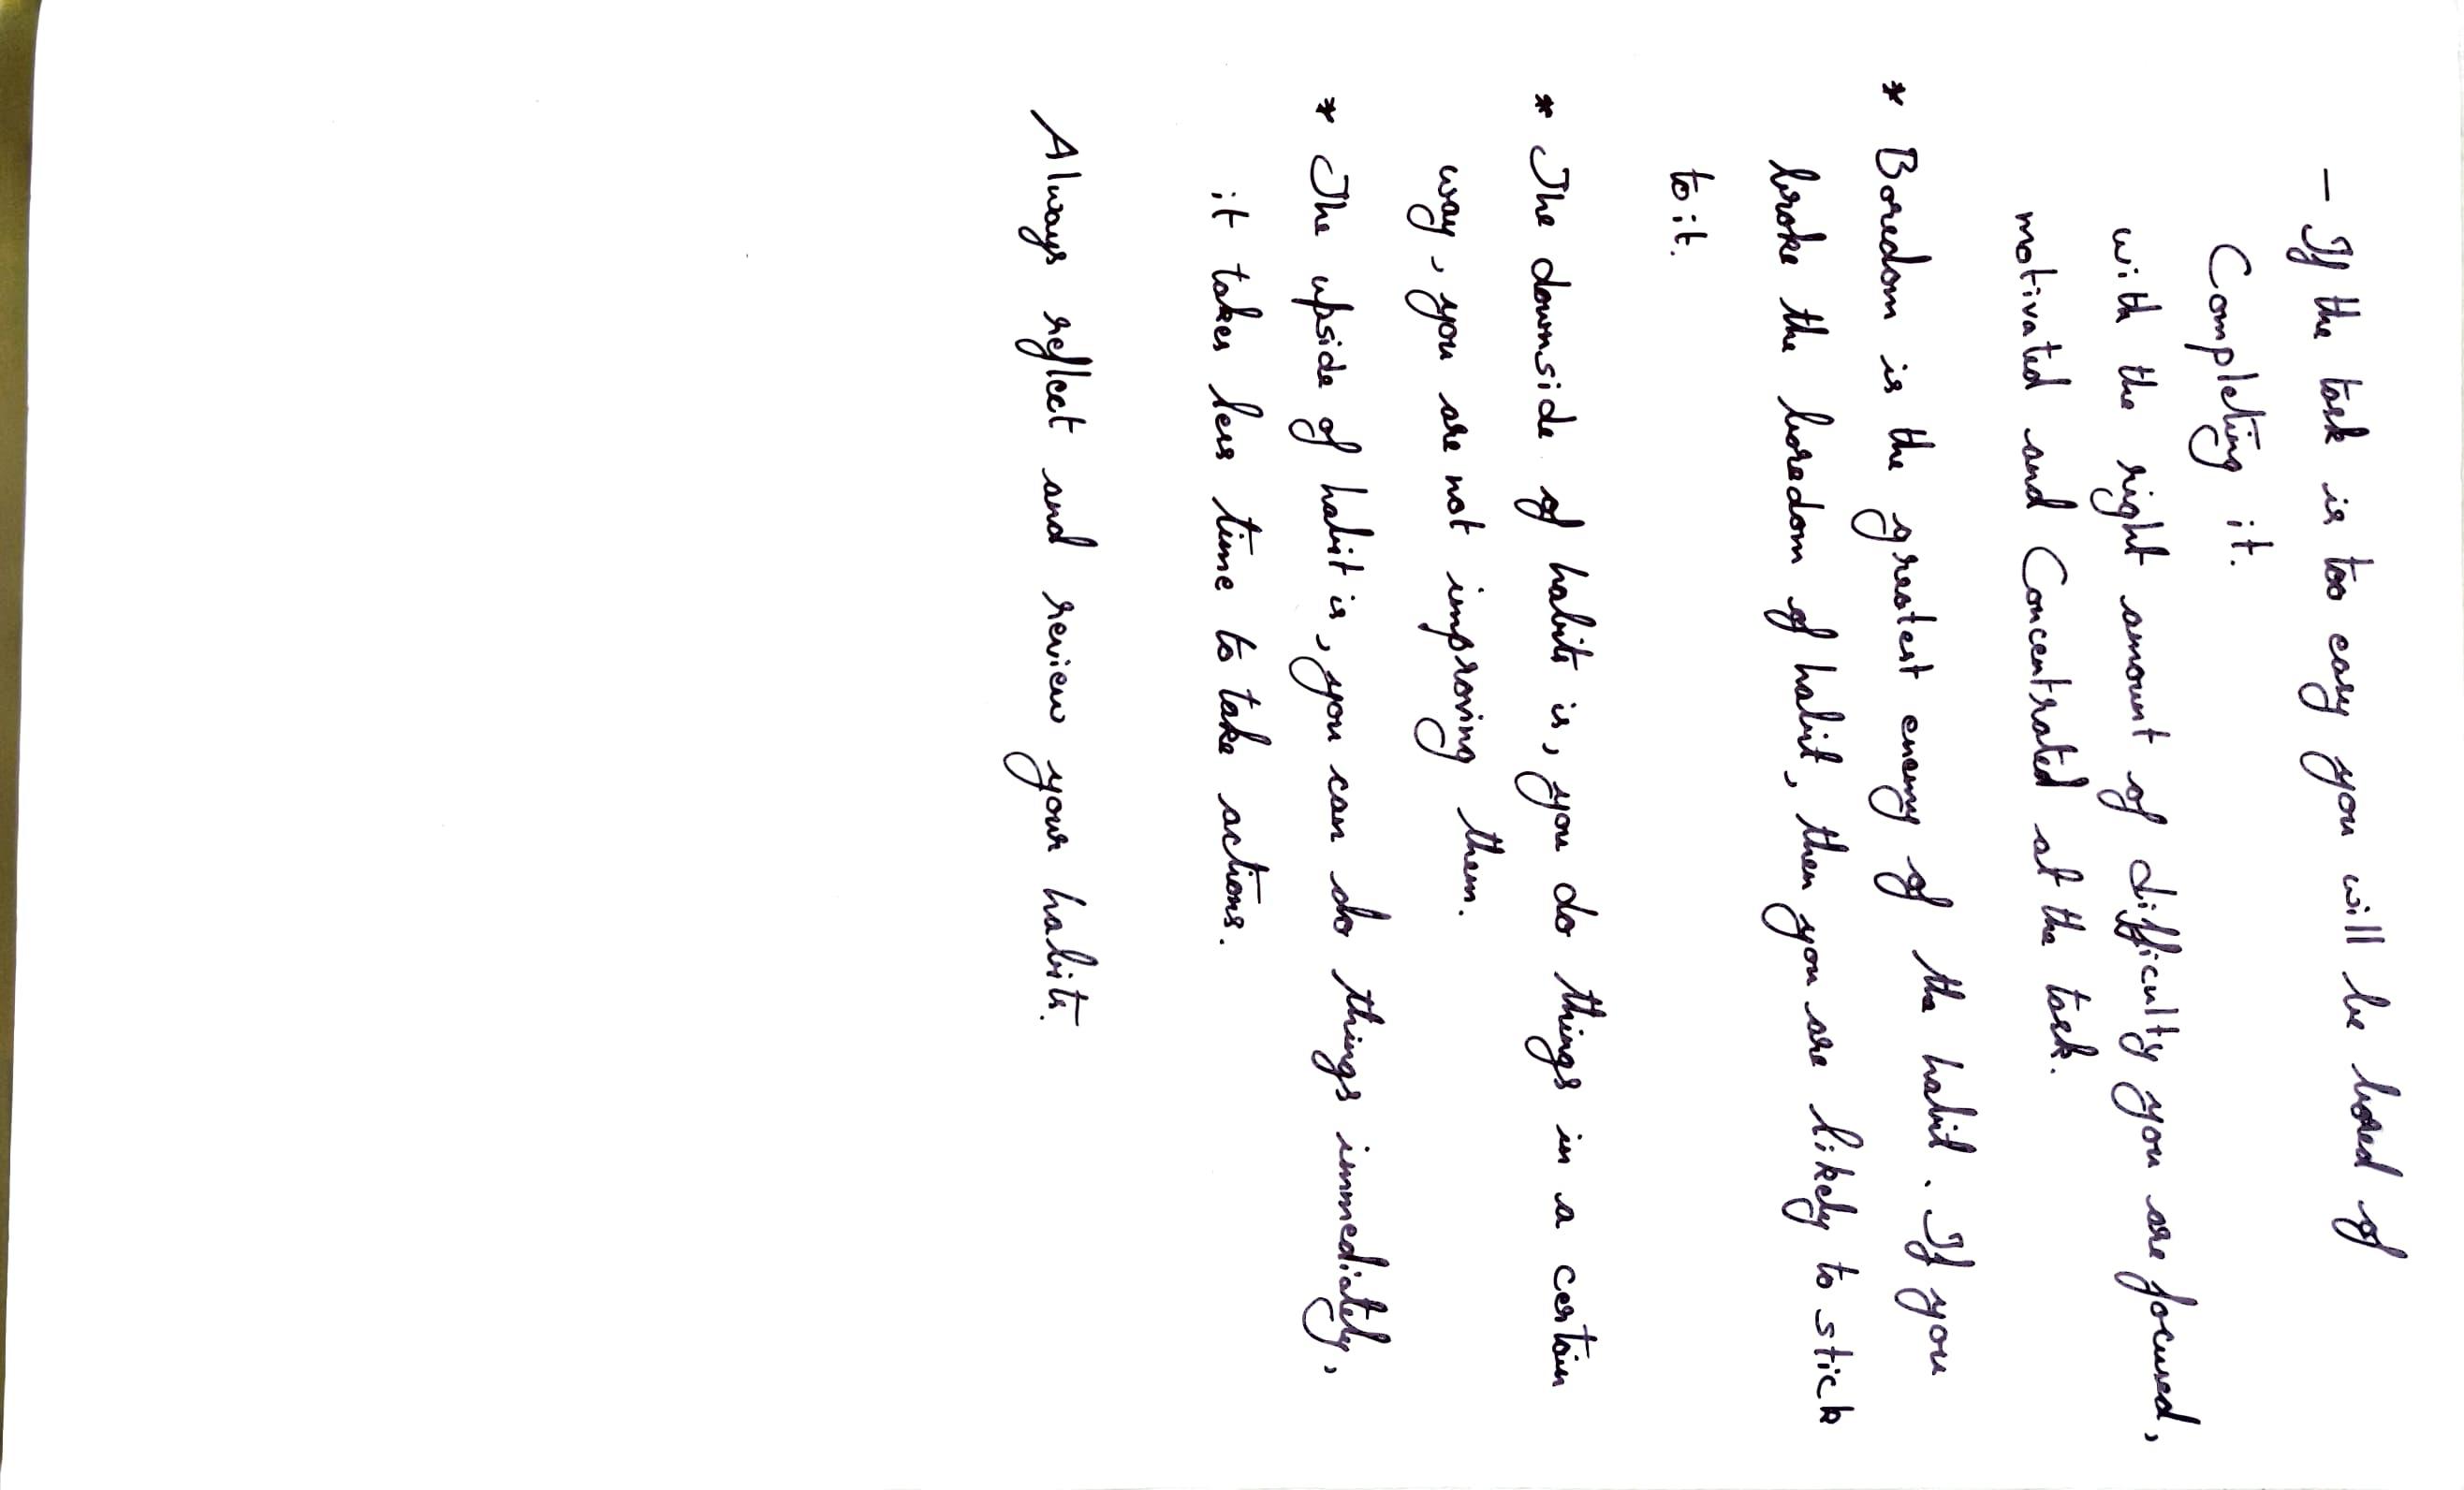 - If the task is too easy you will be bored of
Completing it.
with the right amount of difficulty you are focused,
motivated and Concentrated at the task.
* Boredom is the greatest enemy of the habit. If you
broke the boredom of habit, then you are likely to stick
to it.
* The downside of habits is, you do things in a certain
way, you are not improving them.
* The upside of habit is, you can do things immediately,
it takes less time to take actions.
Always reflect and review your habits.